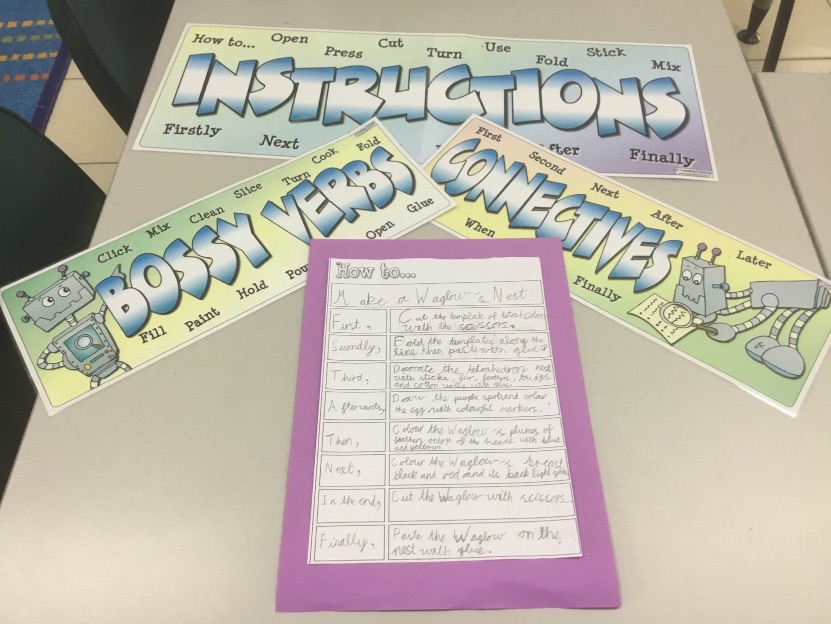 How to... Open Press Cut Turn Use Fold Stick Mix
INSTRUCTIONS
Firstly Next fter Finally
Click Mix Clean Slice Turn Cook Fold
BOSSY VERBS
Fill Paint Hold Pou Open Glue
First Second Next After Later
CONNECTIVES
When Finally
How to...
Make a Waglow's Nest
First, Cut the template of
with the scissors.
Secondly, Fold the templates along the
line then paste with glue.
Third, Decorate the tetrahedron nest
with sticks, fur, feathers, twigs
and cotton wools with glue.
Afterwards, Draw the purple spots and colour
the egg with colourful markers.
Then, Colour the Waglow's plumes of
feathers on top of the heads with blue
Next, Colour the Waglow's breast
black and red and its back light
In the end, Cut the Waglow with scissors
Finally, Paste the Waglow on the
nest with glue.